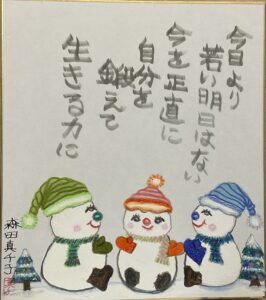 今日より
若い明日はない
今を正直に
自分を
鍛えて
生きる力に
森田真千子